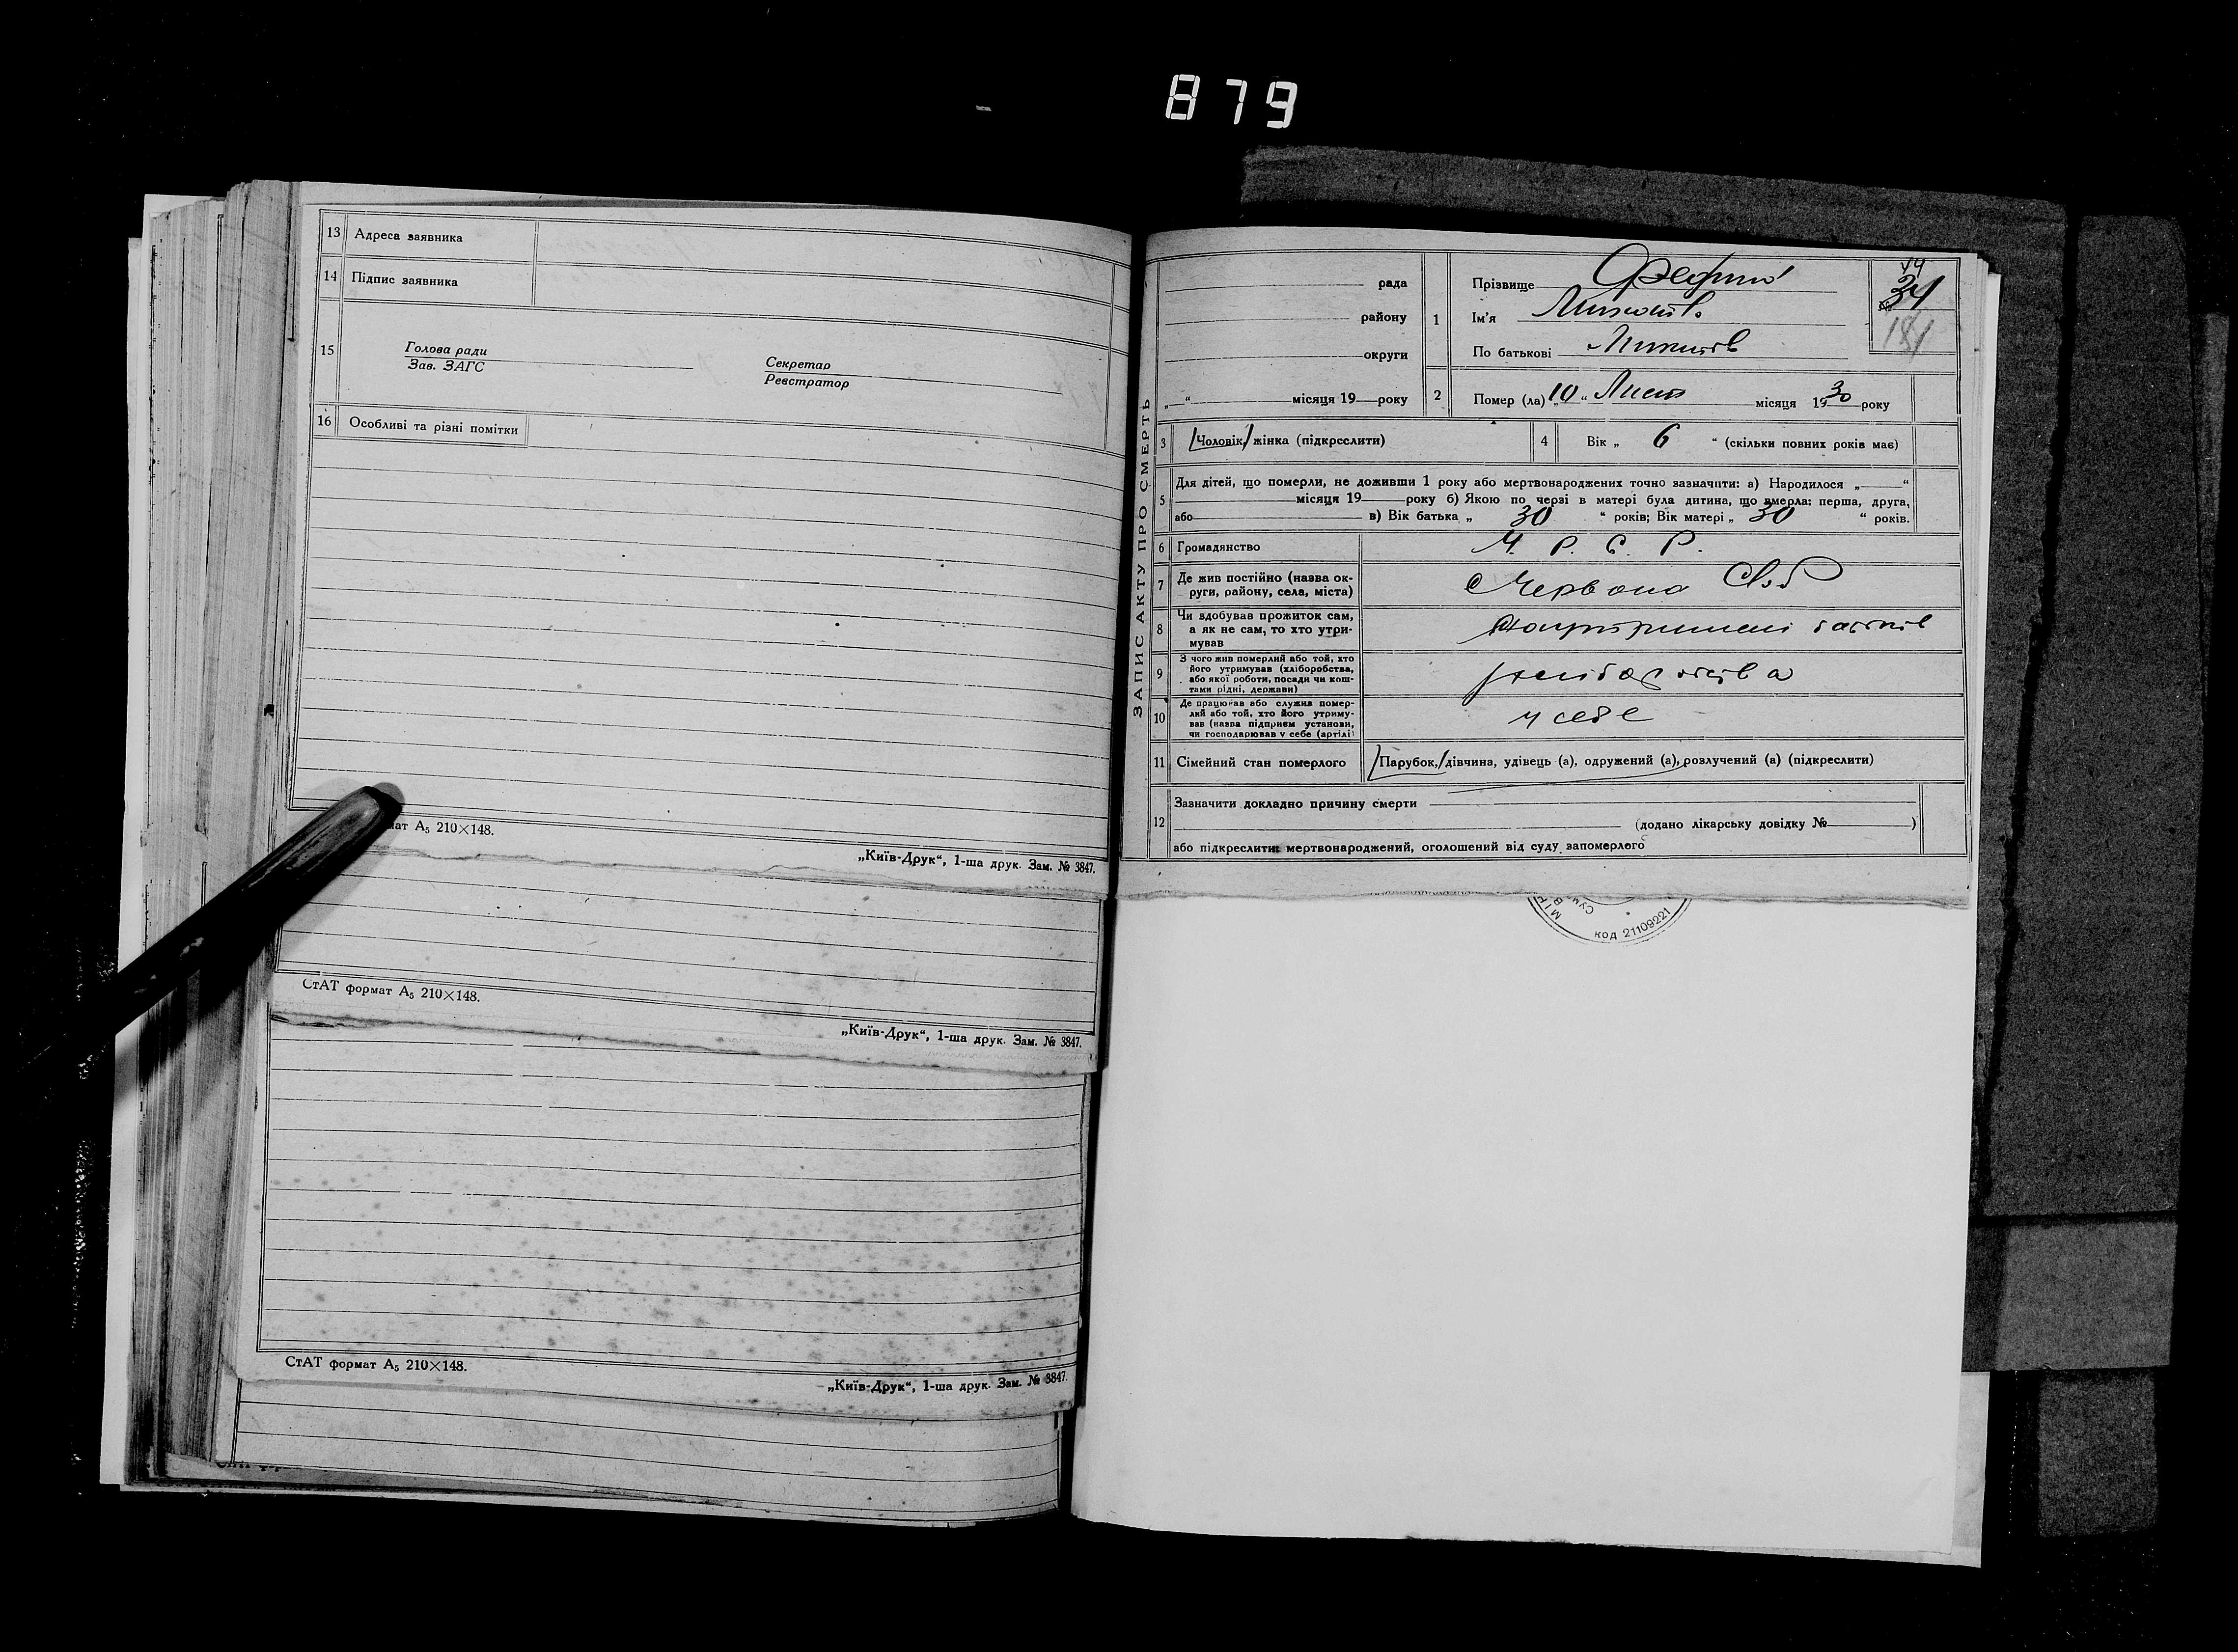 879
13 Адреса заявника
14 Підпис заявника
15 Голова ради
Зав. ЗАГС
Секретар
Реєстратор
16 Особливі та різні помітки
мат А5 210×148.
„Київ-Друк“, 1-ша друк. Зам. № 3847.
СтАТ формат А5 210×148.
„Київ-Друк“, 1-ша друк. Зам. № 3847.
СтАТ формат А5 210×148.
„Київ-Друк“, 1-ша друк. Зам. № 3847.
ЗАПИС АКТУ ПРО СМЕРТЬ
рада
району
округи
„ “ місяця 19 року
1 Прізвище
Ім'я
По батькові
34
181
2 Помер (ла) „10“ Лист місяця 1930 року
3 Чоловік/жінка (підкреслити)
4 Вік „ 6 “ (скільки повних років має)
5 Для дітей, що померли, не доживши 1 року або мертвонароджених точно зазначити: а) Народилося „ “
місяця 19 року б) Якою по черзі в матері була дитина, що вмерла: перша, друга,
або в) Вік батька „ 30 “ років; Вік матері „ 30 “ років.
6 Громадянство У. Р. С. Р.
7 Де жив постійно (назва округи, району, села, міста) Червона
8 Чи здобував прожиток сам,
а як не сам, то хто утри-
мував
9 З чого жив померлий або той, хто
його утримував (хліборобства,
або якої роботи, посади чи кош-
тами рідні, держави)
10 Де працював або служив помер-
лий або той, хто його утриму-
вав (назва підприєм установи,
чи господарював у себе (артілі)
у себе
11 Сімейний стан померлого Парубок,/дівчина, удівець (а), одружений (а), розлучений (а) (підкреслити)
12 Зазначити докладно причину смерти
(додано лікарську довідку № )
або підкреслити: мертвонароджений, оголошений від суду запомерлого
код 21109221